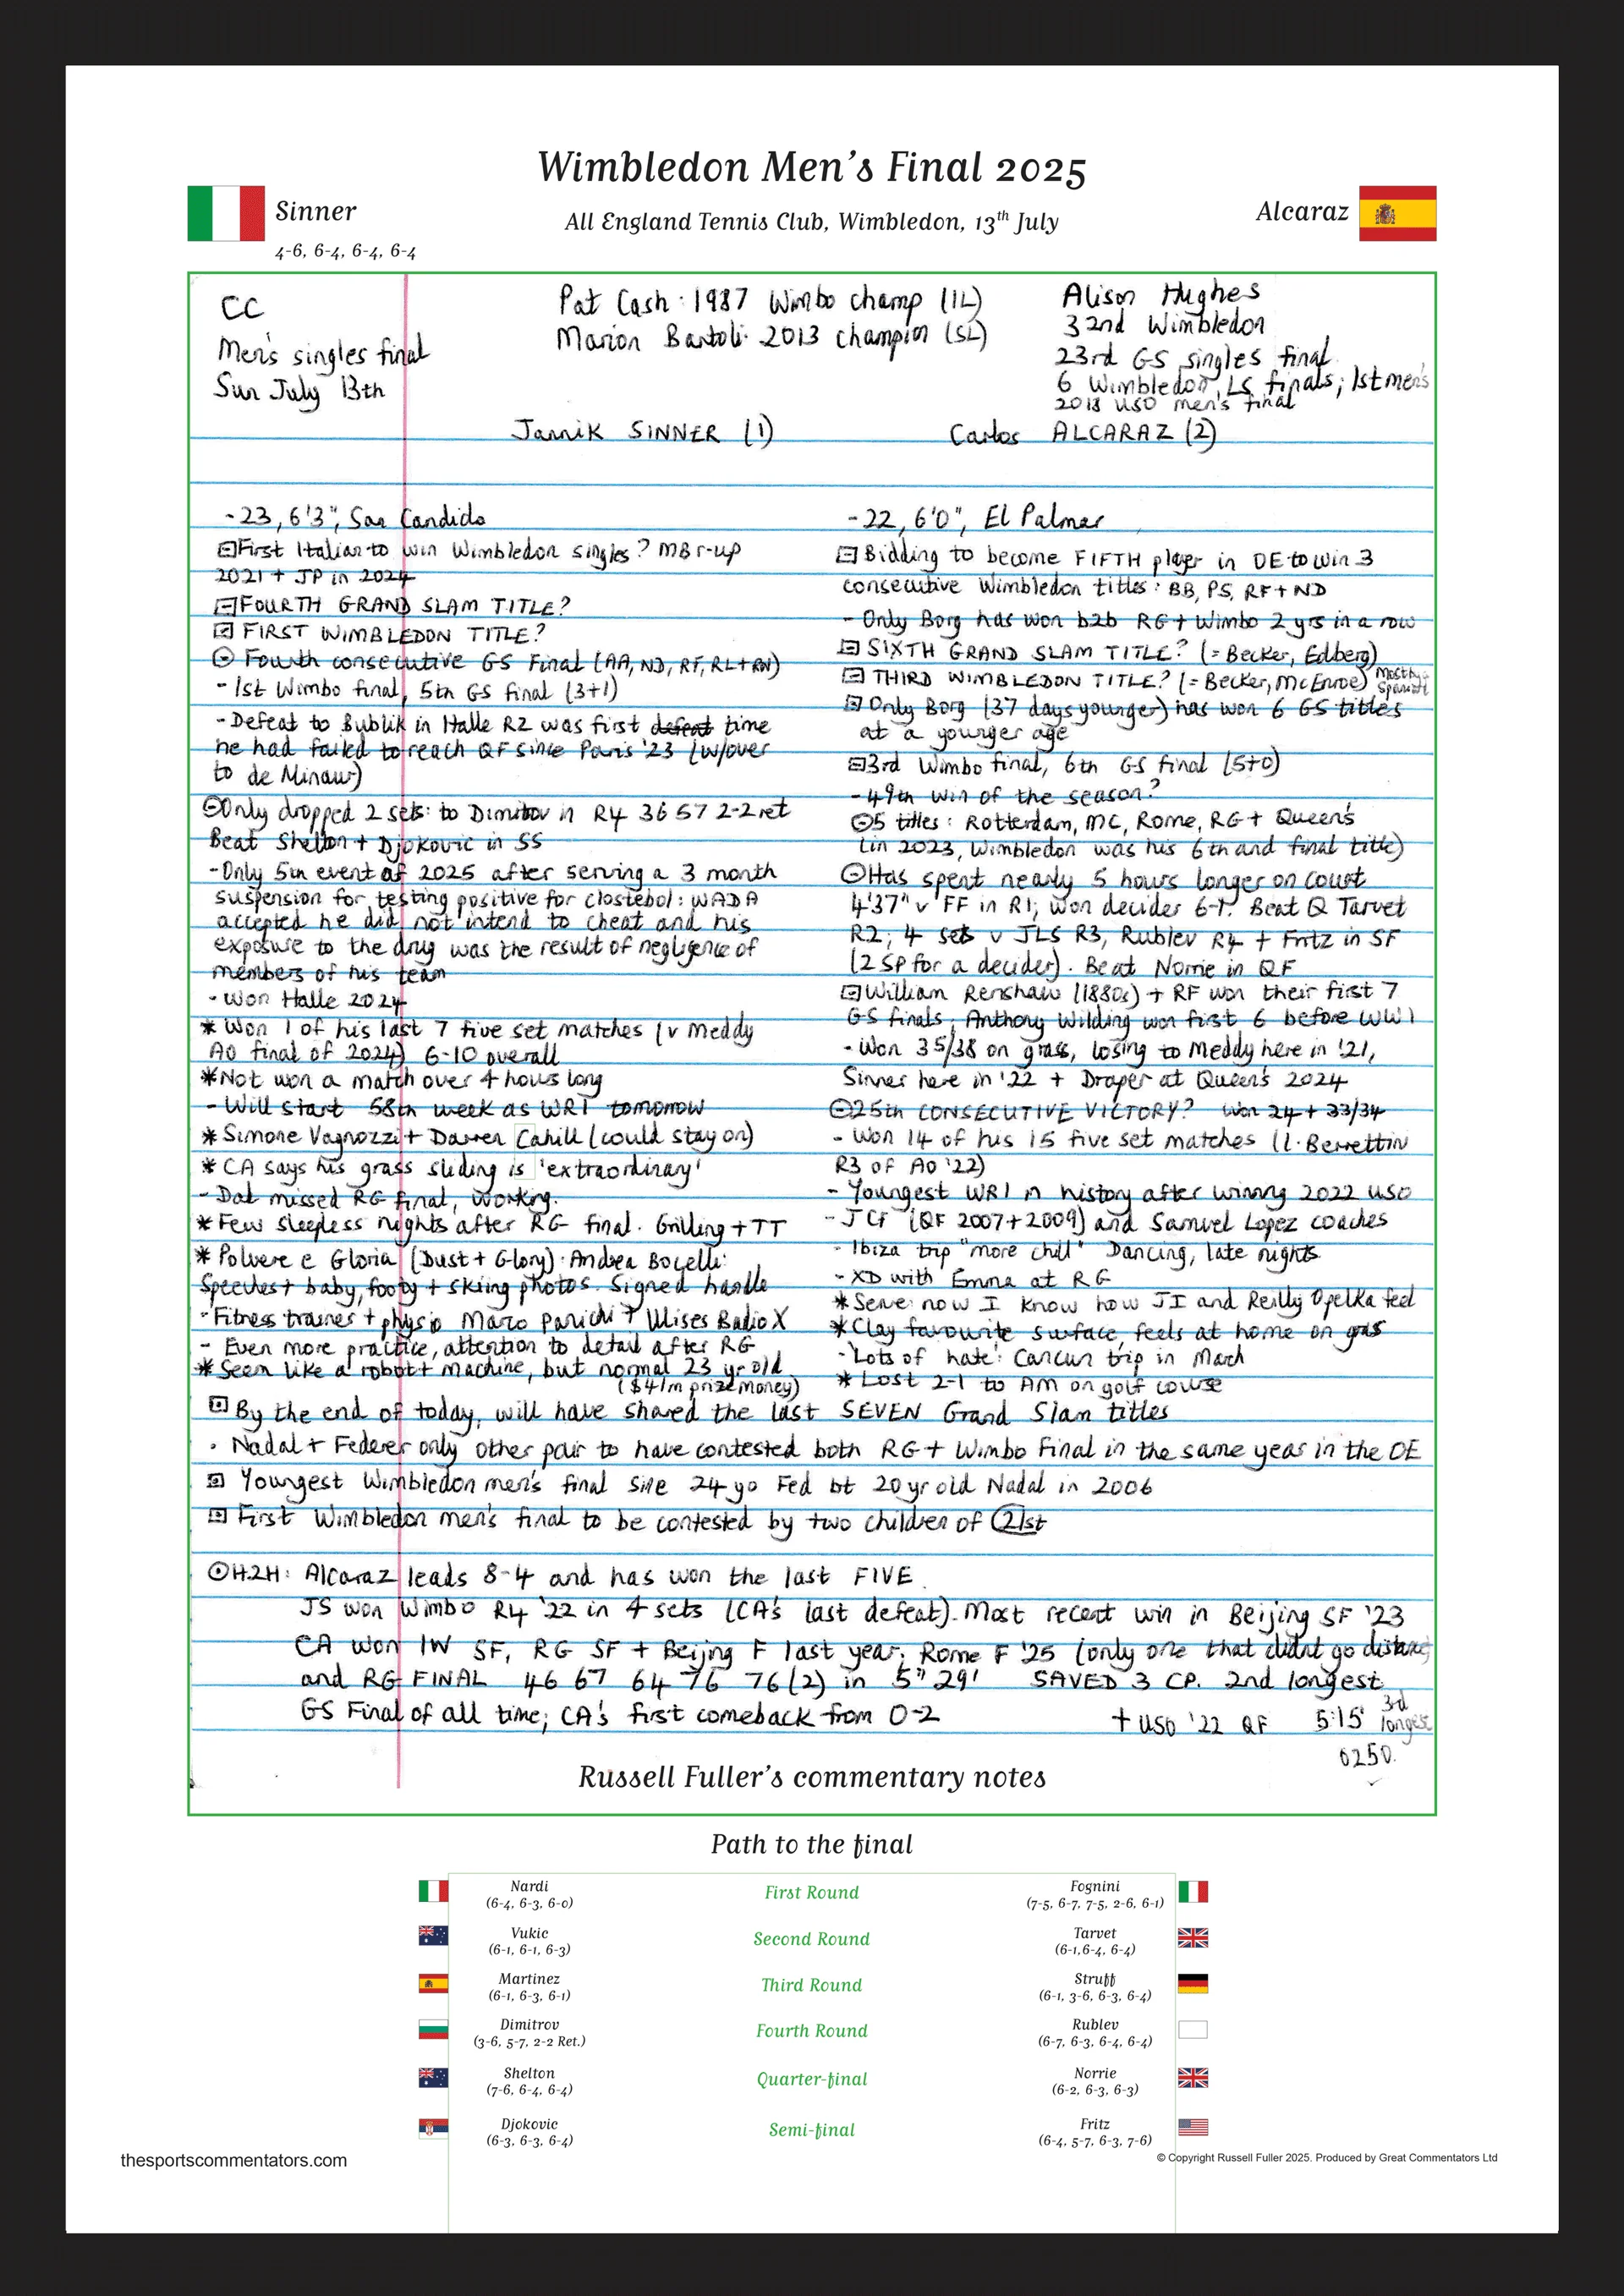 Wimbledon Men's Final 2025
Sinner
All England Tennis Club, Wimbledon, 13th July
Alcaraz
4-6, 6-4, 6-4, 6-4
CC
Men's singles final
Sun July 13th
Pat Cash: 1987 Wimbo champ (IL)
Marion Bartoli: 2013 champion (SL)
Alison Hughes
32nd Wimbledon
23rd GS singles final
6 Wimbledon LS finals; 1st men's
2018 USO men's final
Jannik SINNER (1)
Carlos ALCARAZ (2)
-23, 6'3", San Candido
First Italian to win Wimbledon singles? MB r-up
2021 + JP in 2024
FOURTH GRAND SLAM TITLE?
FIRST WIMBLEDON TITLE?
Fourth consecutive GS Final (AA, ND, RF, RL + RN)
- 1st Wimbo final, 5th GS final (3+1)
- Defeat to Bublik in Halle R2 was first defeat time
he had failed to reach QF since Paris '23 (w/over
to de Minaur)
Only dropped 2 sets: to Dimitrov in R4 36 57 2-2 ret
Beat Shelton + Djokovic in SS
- Only 5th event of 2025 after serving a 3 month
suspension for testing positive for clostebol: WADA
accepted he did not intend to cheat and his
exposure to the drug was the result of negligence of
members of his team
- Won Halle 2024
* Won 1 of his last 7 five set matches (v Meddy
AO final of 2024) 6-10 overall
* Not won a match over 4 hours long
- Will start 58th week as WR1 tomorrow
* Simone Vagnozzi + Darren Cahill (could stay on)
* CA says his grass sliding is 'extraordinary'
- Dad missed RG final, working.
* Few sleepless nights after RG final. Grilling + TT
* Polvere e Gloria (Dust + Glory): Andrea Bocelli:
Speeches + baby, footy + skiing photos. Signed handle
- Fitness trainer + physio Marco Panichi + Ulises Badio X
- Even more practice, attention to detail after RG
* Seen like a robot + machine, but normal 23 yr old
($41m prize money)
-22, 6'0", El Palmar
Bidding to become FIFTH player in OE to win 3
consecutive Wimbledon titles: BB, PS, RF + ND
- Only Borg has won b2b RG + Wimbo 2 yrs in a row
SIXTH GRAND SLAM TITLE? (= Becker, Edberg)
THIRD WIMBLEDON TITLE? (= Becker, McEnroe) Most by Spaniard
Only Borg (37 days younger) has won 6 GS titles
at a younger age
3rd Wimbo final, 6th GS final (5+0)
- 49th win of the season?
5 titles: Rotterdam, MC, Rome, RG + Queen's
(in 2023, Wimbledon was his 6th and final title)
Has spent nearly 5 hours longer on court
4'37" v FF in R1; won decider 6-1. Beat Q Tarvet
R2; 4 sets v JLS R3, Rublev R4 + Fritz in SF
(2 SP for a decider). Beat Norrie in QF
William Renshaw (1880s) + RF won their first 7
GS finals; Anthony Wilding won first 6 before WW1
- Won 35/38 on grass, losing to Meddy here in '21,
Sinner here in '22 + Draper at Queen's 2024
25th CONSECUTIVE VICTORY? Won 24 + 33/34
- Won 14 of his 15 five set matches (l. Berrettini
R3 of AO '22)
- Youngest WR1 in history after winning 2022 USO
- JCF (QF 2007 + 2009) and Samuel Lopez coaches
- Ibiza trip "more chill" Dancing, late nights
- XD with Emma at RG
* Serve: now I know how JI and Reilly Opelka feel
* Clay favourite surface, feels at home on grass
- 'Lots of hate': Cancun trip in March
* Lost 2-1 to AM on golf course
By the end of today, will have shared the last SEVEN Grand Slam titles
· Nadal + Federer only other pair to have contested both RG + Wimbo Final in the same year in the OE
Youngest Wimbledon men's final since 24 yo Fed bt 20 yr old Nadal in 2006
First Wimbledon men's final to be contested by two children of 21st
H2H: Alcaraz leads 8-4 and has won the last FIVE
JS won Wimbo R4 '22 in 4 sets (CA's last defeat). Most recent win in Beijing SF '23
CA won IW SF, RG SF + Beijing F last year; Rome F '25 (only one that didnt go distance)
and RG FINAL 46 67 64 76 76(2) in 5" 29' SAVED 3 CP. 2nd longest
GS Final of all time; CA's first comeback from 0-2
+ USO '22 QF 5:15' 3rd longest
0250.
Russell Fuller's commentary notes
Path to the final
Nardi
(6-4, 6-3, 6-0)
First Round
Fognini
(7-5, 6-7, 7-5, 2-6, 6-1)
Vukic
(6-1, 6-1, 6-3)
Second Round
Tarvet
(6-1,6-4, 6-4)
Martinez
(6-1, 6-3, 6-1)
Third Round
Struff
(6-1, 3-6, 6-3, 6-4)
Dimitrov
(3-6, 5-7, 2-2 Ret.)
Fourth Round
Rublev
(6-7, 6-3, 6-4, 6-4)
Shelton
(7-6, 6-4, 6-4)
Quarter-final
Norrie
(6-2, 6-3, 6-3)
Djokovic
(6-3, 6-3, 6-4)
Semi-final
Fritz
(6-4, 5-7, 6-3, 7-6)
thesportscommentators.com
© Copyright Russell Fuller 2025. Produced by Great Commentators Ltd